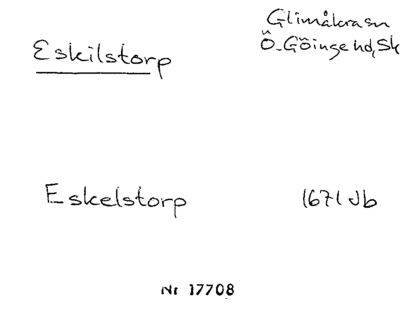 Glimåkra sn
Eskilstorp
Ö. Göinge hd, Sk
Eskelstorp 1671 Jb
Nr 17708